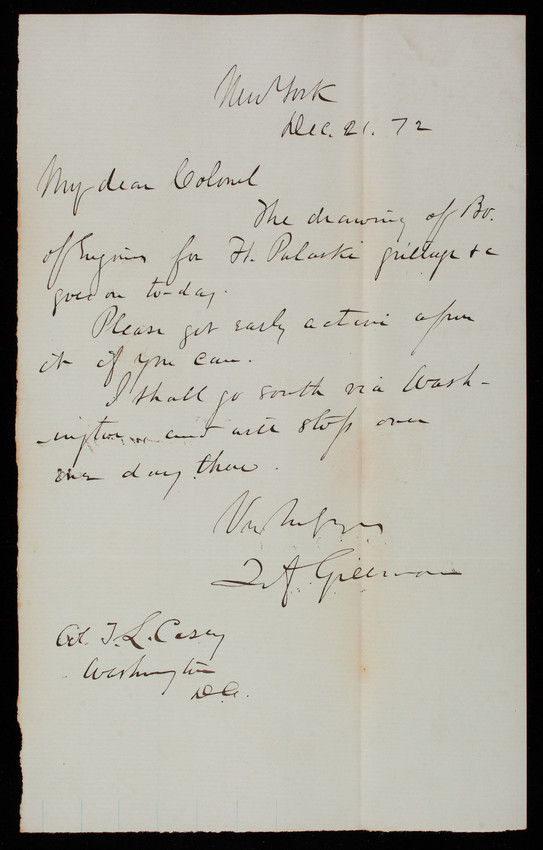 New York
Dec. 21. 72
My dear Colonel
The drawing of Bo.
of Engrs for Ft. Pulaski grillage &c
goes on to-day.
Please get early action upon
it if you can.
I shall go south via Wash-
ington and will stop over
one day there.
Very truly yrs
Q A. Gillmore
Col. T. L. Casey
Washington
D.C.